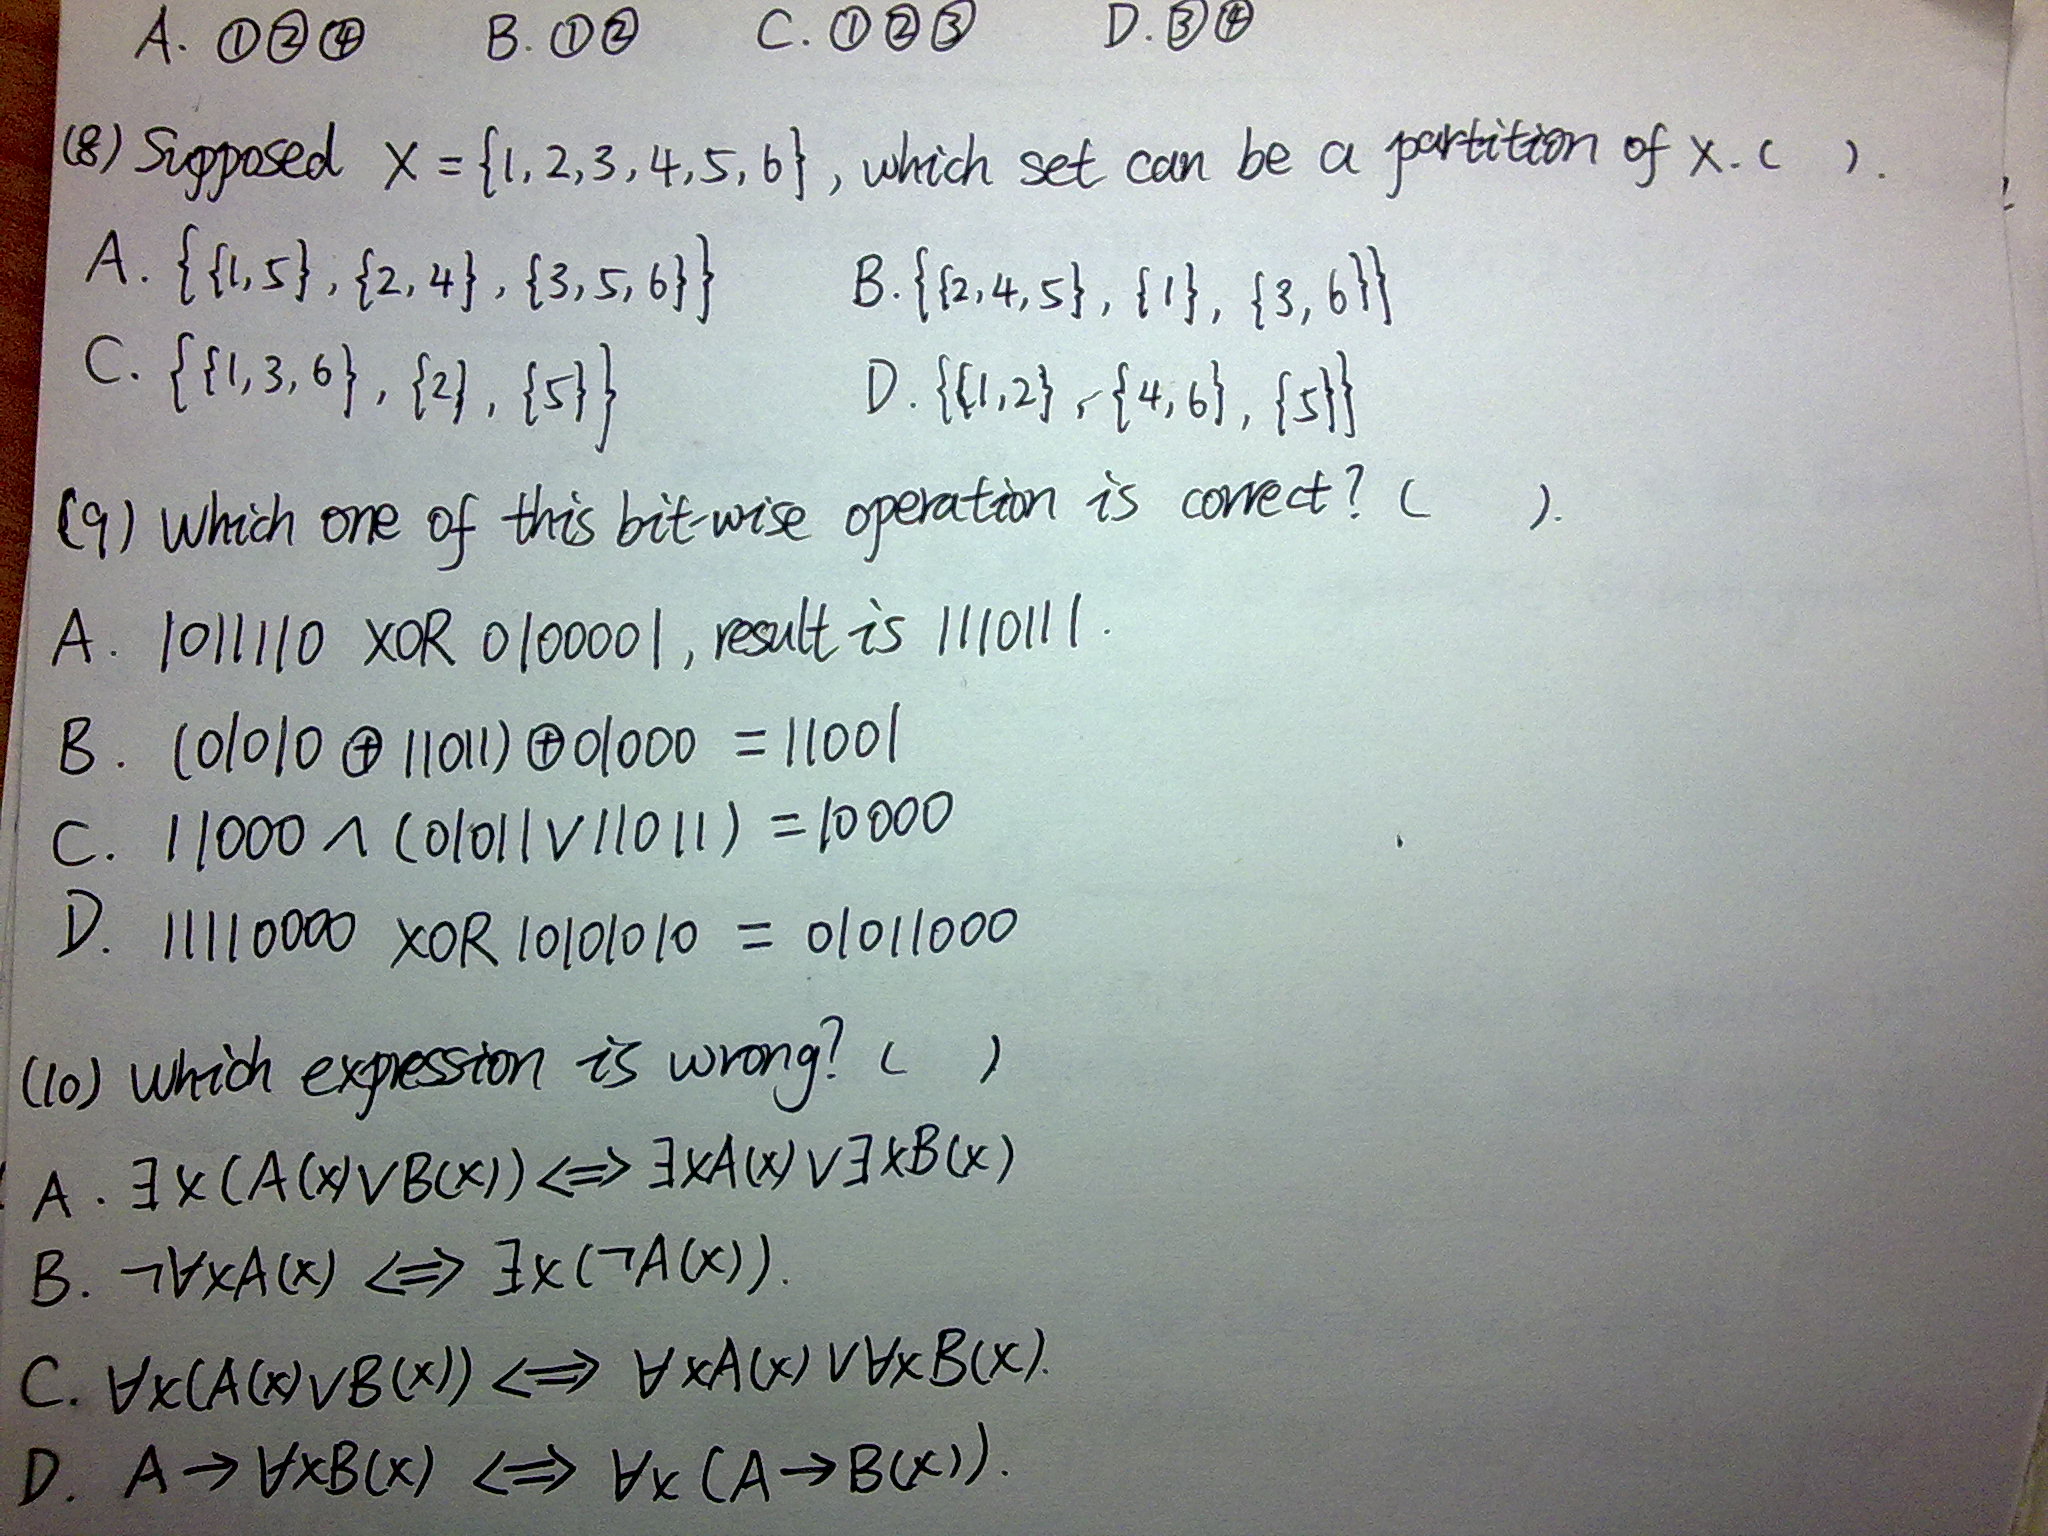 A. ①②④ B. ①② C. ①②③ D. ③④
(8) Supposed X = {1, 2, 3, 4, 5, 6}, which set can be a partition of X. ( ).
A. {{1, 5}, {2, 4}, {3, 5, 6}} B. {{2, 4, 5}, {1}, {3, 6}}
C. {{1, 3, 6}, {2}, {5}} D. {{1, 2}, {4, 6}, {5}}
(9) Which one of this bit-wise operation is correct? ( ).
A. 1011110 XOR 0100001, result is 1110111.
B. (01010 ⊕ 11011) ⊕ 01000 = 11001
C. 11000 ∧ (01011 ∨ 11011) = 10000
D. 11110000 XOR 10101010 = 01011000
(10) Which expression is wrong? ( )
A. ∃x(A(x)∨B(x)) <=> ∃xA(x)∨∃xB(x)
B. ¬∀xA(x) <=> ∃x(¬A(x)).
C. ∀x(A(x)∨B(x)) <=> ∀xA(x)∨∀xB(x).
D. A→∀xB(x) <=> ∀x(A→B(x)).